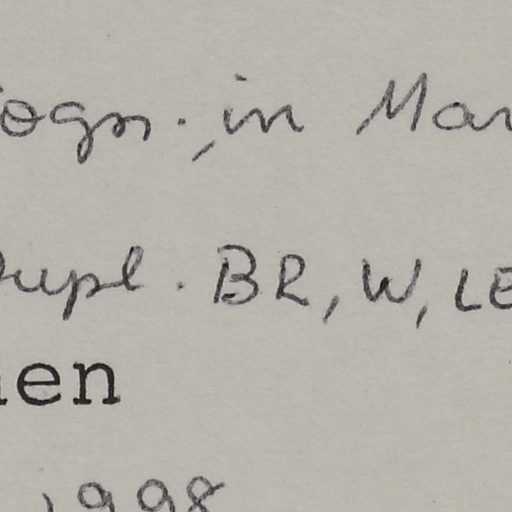 ogn., in Mar
Dupl. BR, W, LE
en
1998